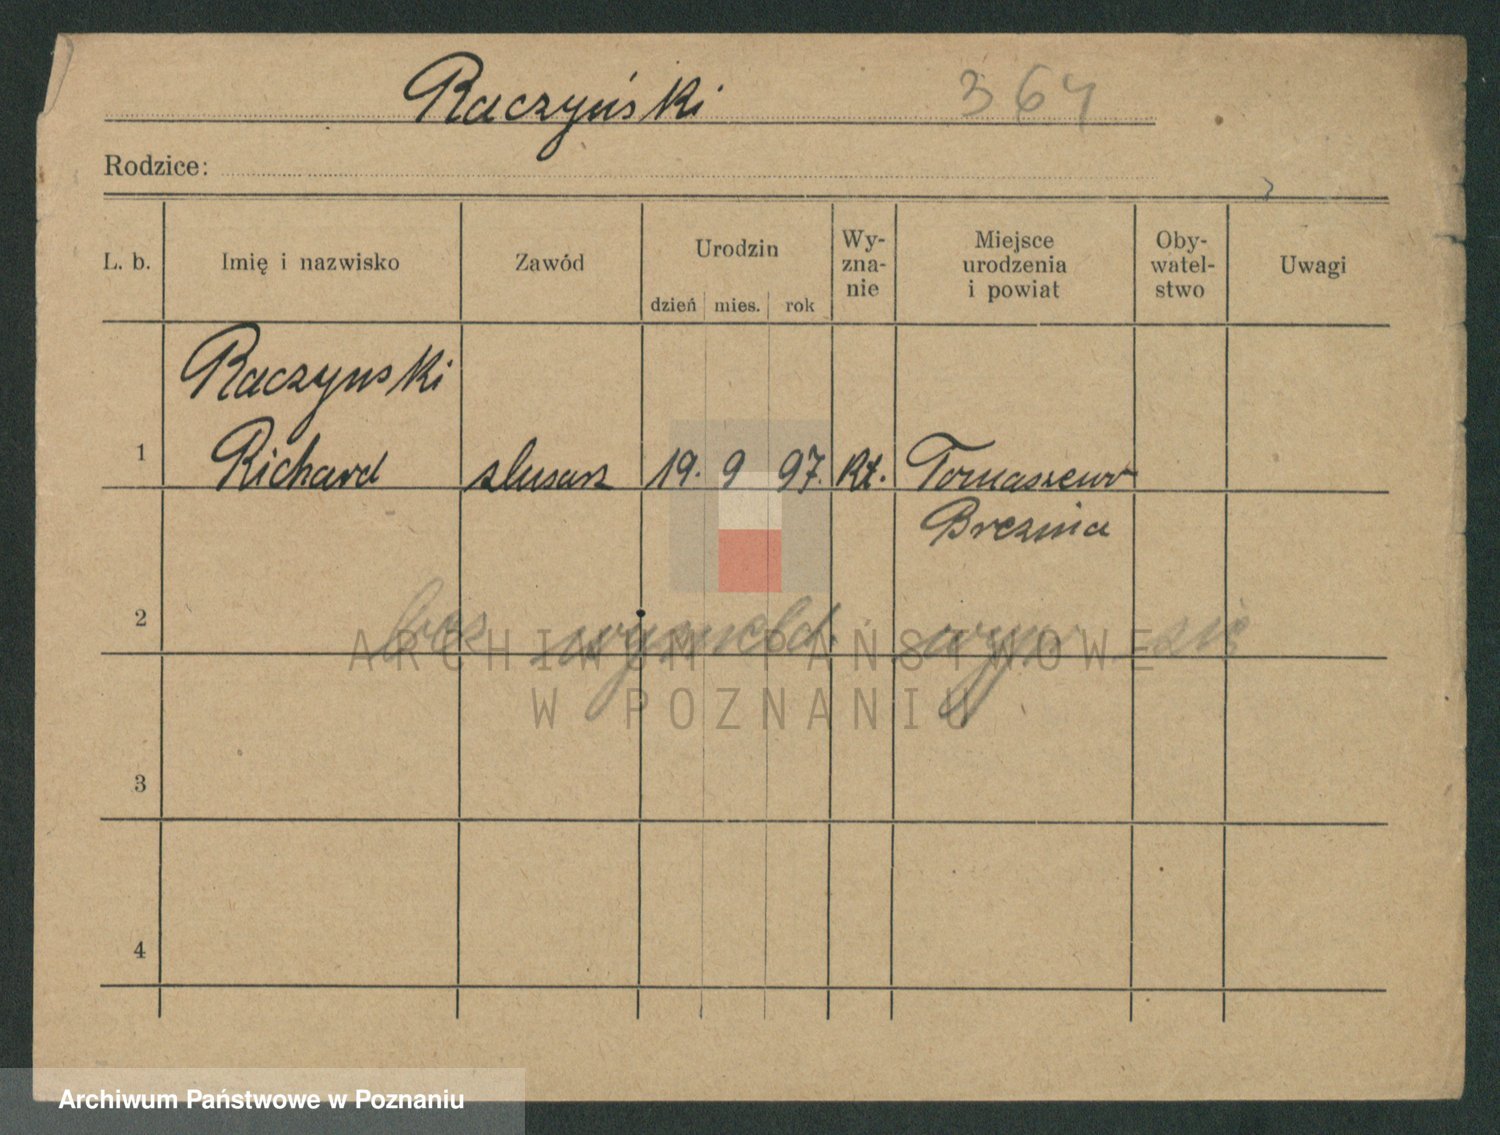 Raczyński 364
Rodzice:
L. b. Imię i nazwisko Zawód Urodzin dzień mies. rok Wy-
zna-
nie Miejsce
urodzenia
i powiat Oby-
watel-
stwo Uwagi
Raczynski
1 Richard slusarz 19. 9 97. Rk. Tomaszewo
Brezina
2 bez wymeld. wypr. się
3
4
ARCHIWUM PAŃSTWOWE
W POZNANIU
Archiwum Państwowe w Poznaniu